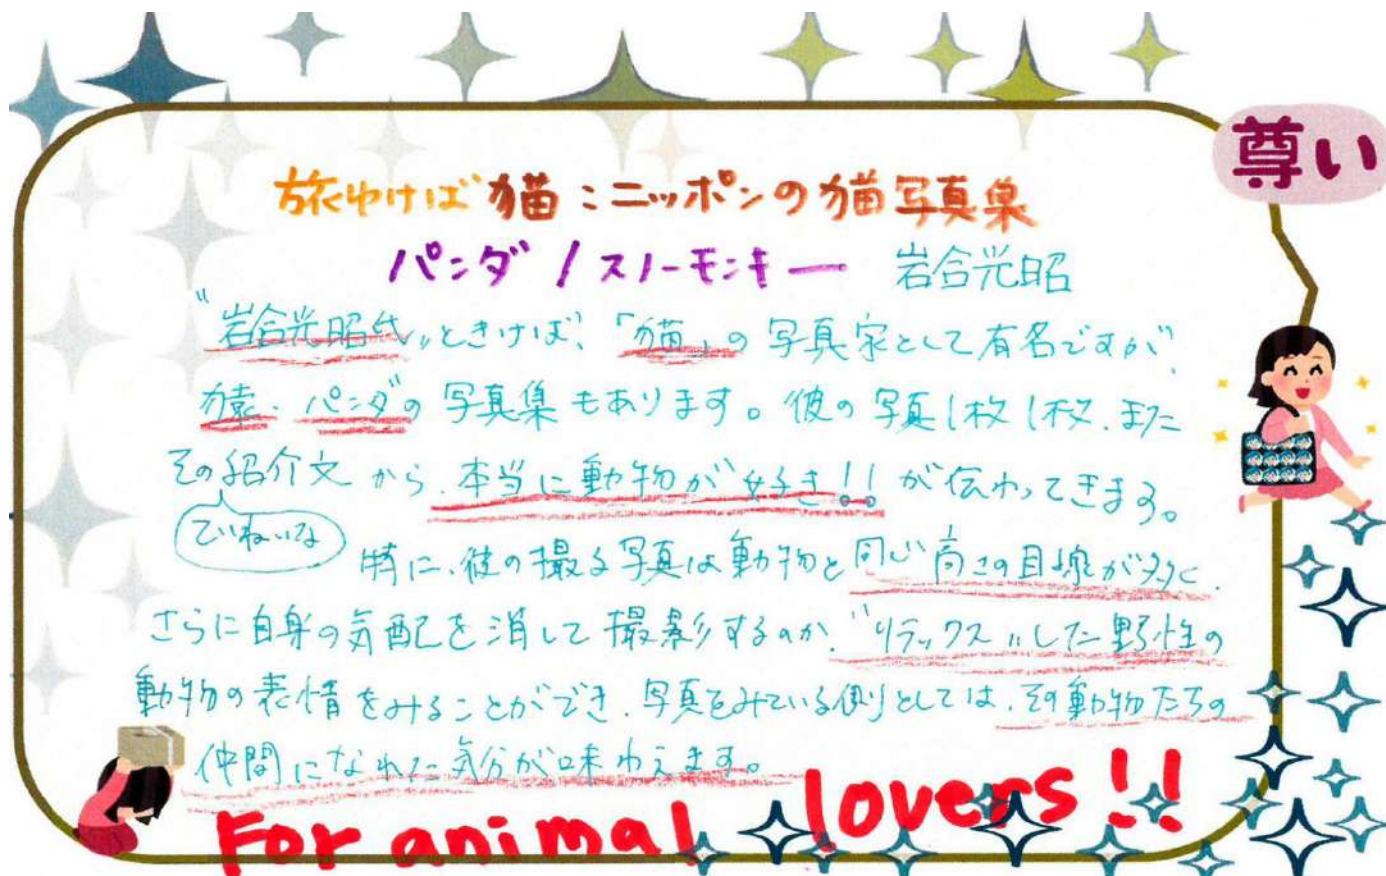 尊い
旅ゆけば猫：ニッポンの猫写真集
パンダ / スノーモンキー 岩合光昭
"岩合光昭氏〟ときけば、「猫」の写真家として有名ですが、
猿・パンダの写真集もあります。彼の写真1枚1枚、また
その紹介文から、本当に動物が好き!!が伝わってきます。
ていねいな
特に、彼の撮る写真は動物と同じ高さの目線が多く、
さらに自身の気配を消して撮影するのか、"リラックス〟した野性の
動物の表情をみることができ、写真をみている側としては、その動物たちの
仲間になれた気分が味わえます。
For animal lovers!!